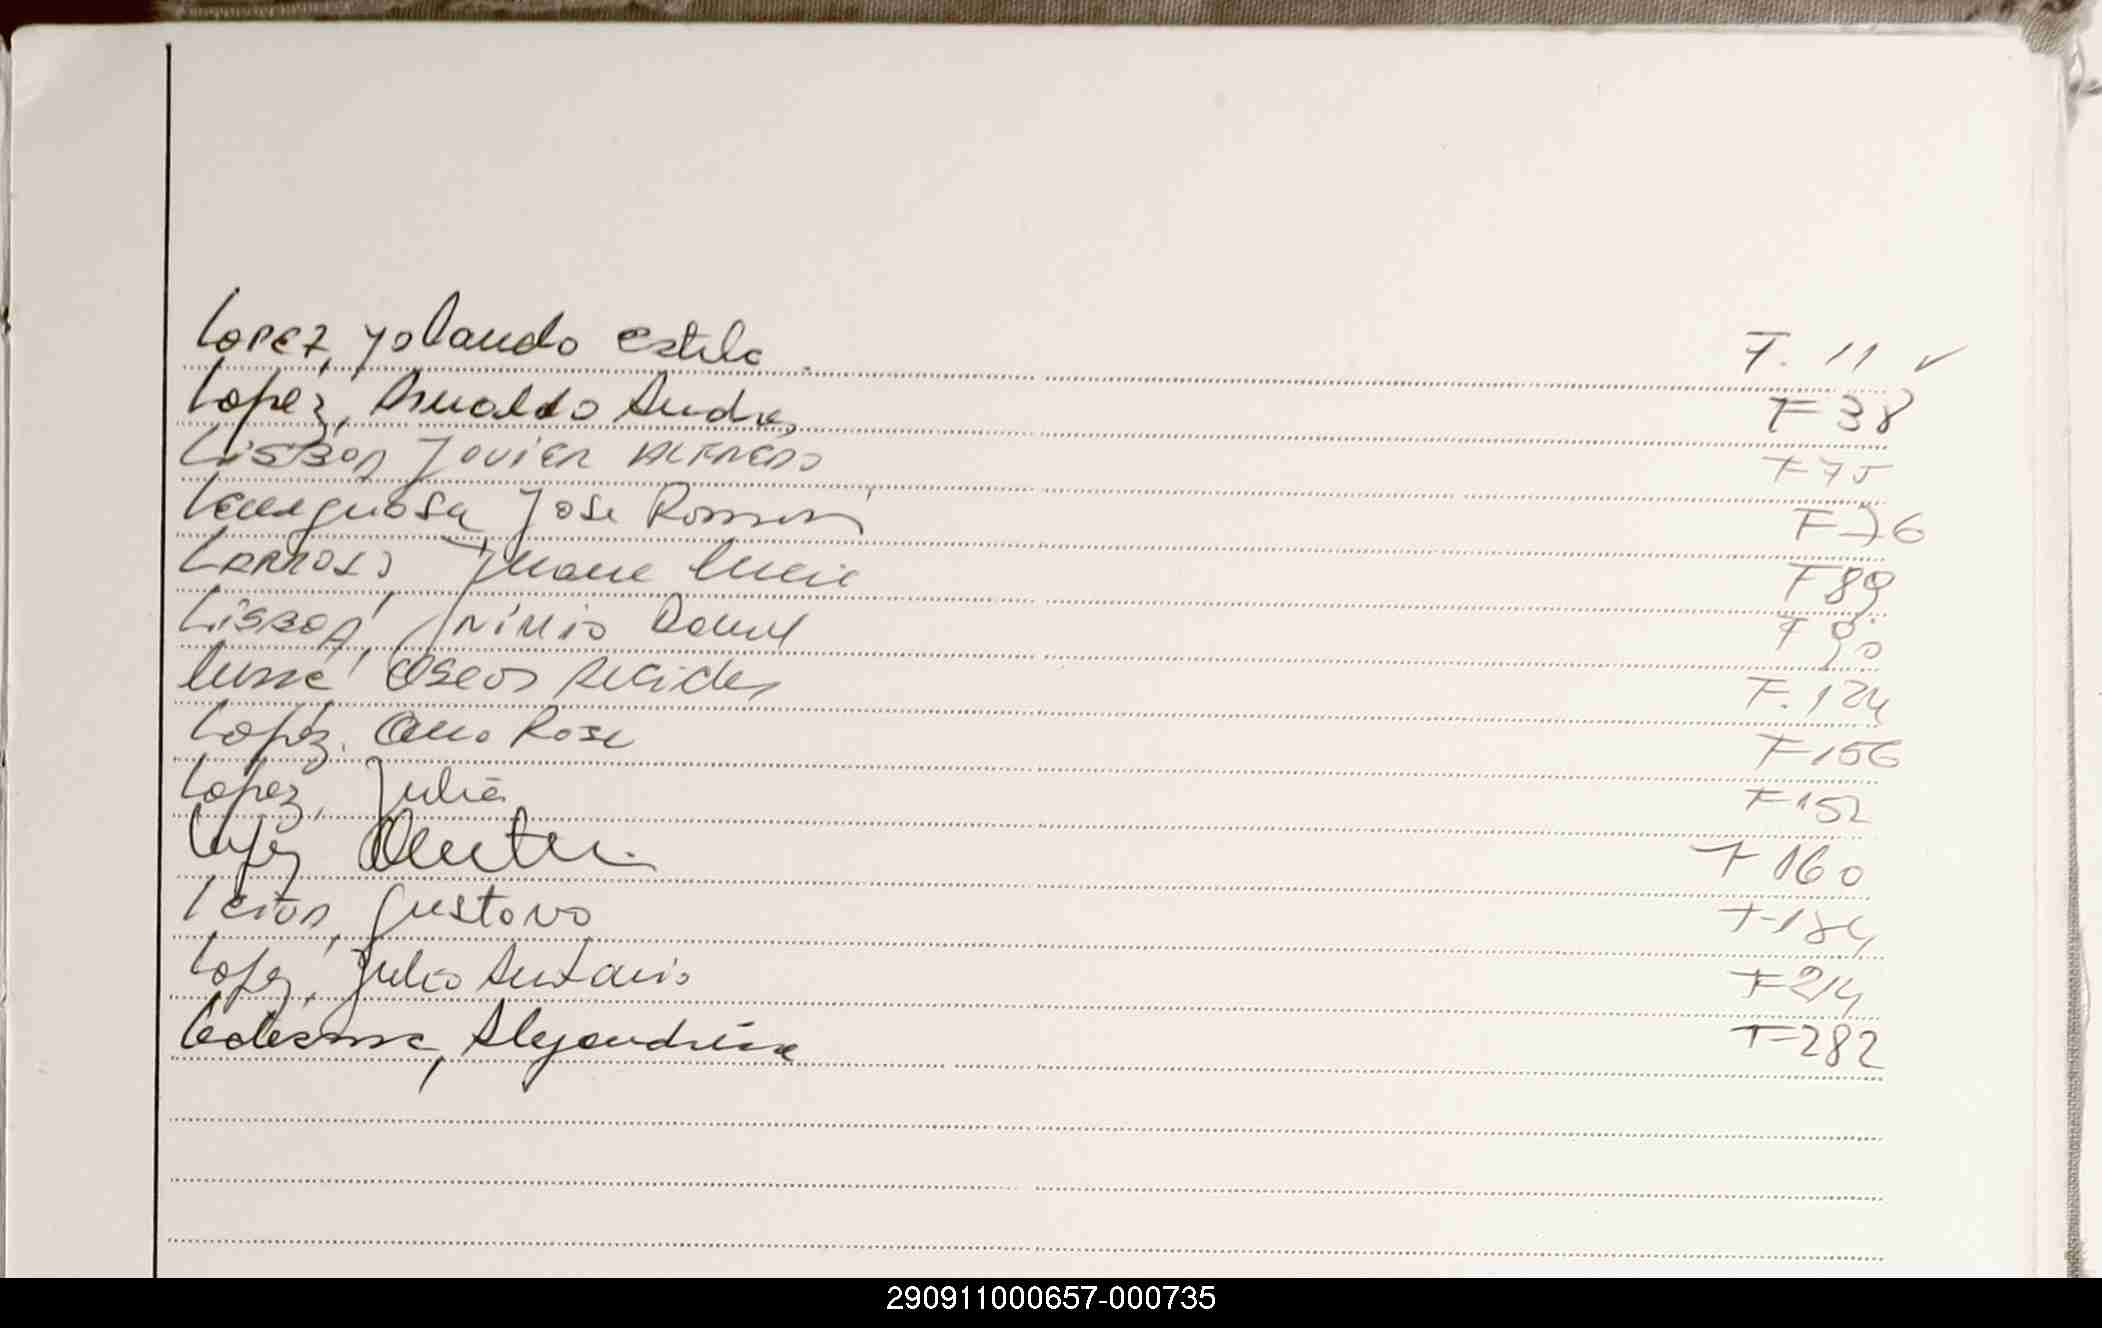 Lopez, Yolando Estela F. 11 ✓
Lopez, Arnaldo Andres F 38
Lisboa Javier Alfredo F 75
Jose Ramon F 76
Larrosa, Juana Lucia F 89
Lisboa, Daniel F 90
Oscar Alcides F. 124
Lopez. Ana Rosa F 156
Lopez, Julia F 152
Lopez F 160
Leiva, Gustavo F 184
Lopez, Julio Antonio F 214
Ledesma, Alejandrina F 282
290911000657-000735